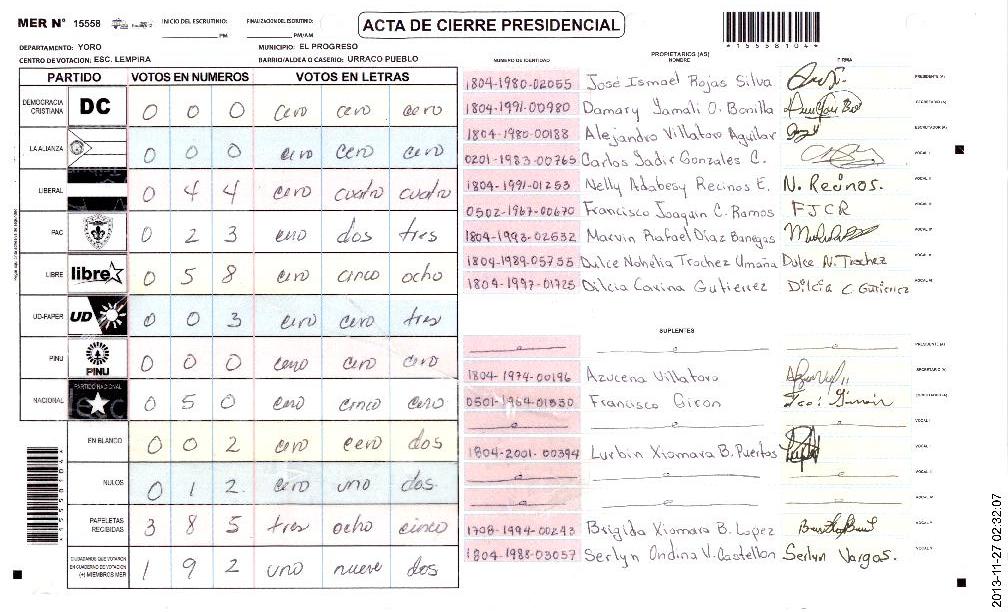 MER N° 15558 INICIO DEL ESCRUTINIO: PM FINALIZACION DEL ESCRUTINIO: PM/AM
ACTA DE CIERRE PRESIDENCIAL
*15558104*
DEPARTAMENTO: YORO MUNICIPIO: EL PROGRESO
CENTRO DE VOTACION: ESC. LEMPIRA BARRIO/ALDEA O CASERIO: URRACO PUEBLO
PARTIDO VOTOS EN NUMEROS VOTOS EN LETRAS
DEMOCRACIA CRISTIANA DC 0 0 0 cero cero cero
LA ALIANZA 0 0 0 cero cero cero
LIBERAL 0 4 4 cero cuatro cuatro
PAC 0 2 3 cero dos tres
LIBRE libre 0 5 8 cero cinco ocho
UD-FAPER UD 0 0 3 cero cero tres
PINU PINU 0 0 0 cero cero cero
NACIONAL PARTIDO NACIONAL 0 5 0 cero cinco cero
EN BLANCO 0 0 2 cero cero dos
NULOS 0 1 2 cero uno dos
PAPELETAS RECIBIDAS 3 8 5 tres ocho cinco
CIUDADANOS QUE VOTARON EN CUADERNO DE VOTACION (+) MIEMBROS MER 1 9 2 uno nueve dos
*15558104*
PROPIETARIOS (AS)
NUMERO DE IDENTIDAD NOMBRE FIRMA
1804-1980-02055 José Ismael Rojas Silva PRESIDENTE (A)
1804-1991-00980 Damary Yamali O. Bonilla SECRETARIO (A)
1804-1980-00188 Alejandro Villatoro Aguilar ESCRUTADOR (A)
0201-1983-00765 Carlos Jadir Gonzales C. VOCAL I
1804-1991-01253 Nelly Adabesy Recinos E. N. Recinos. VOCAL II
0502-1967-00670 Francisco Joaquin C. Ramos FJCR VOCAL III
1804-1993-02632 Marvin Rafael Díaz Banegas VOCAL IV
1804-1989-05755 Dulce Nohelia Trochez Umaña Dulce N. Trochez VOCAL V
1804-1997-01725 Dilcia Carina Gutierrez Dilcia C. Gutierrez VOCAL VI
SUPLENTES
PRESIDENTE (A)
1804-1974-00196 Azucena Villatoro SECRETARIO (A)
0501-1964-01830 Francisco Giron ESCRUTADOR (A)
VOCAL I
1804-2001-00394 Lurbin Xiomara B. Puertos VOCAL II
VOCAL III
VOCAL IV
1708-1994-00293 Brigida Xiomara B. Lopez VOCAL V
1804-1988-03057 Serlyn Ondina V. Castellon Serlyn Vargas. VOCAL VI
2013-11-27 02:32:07